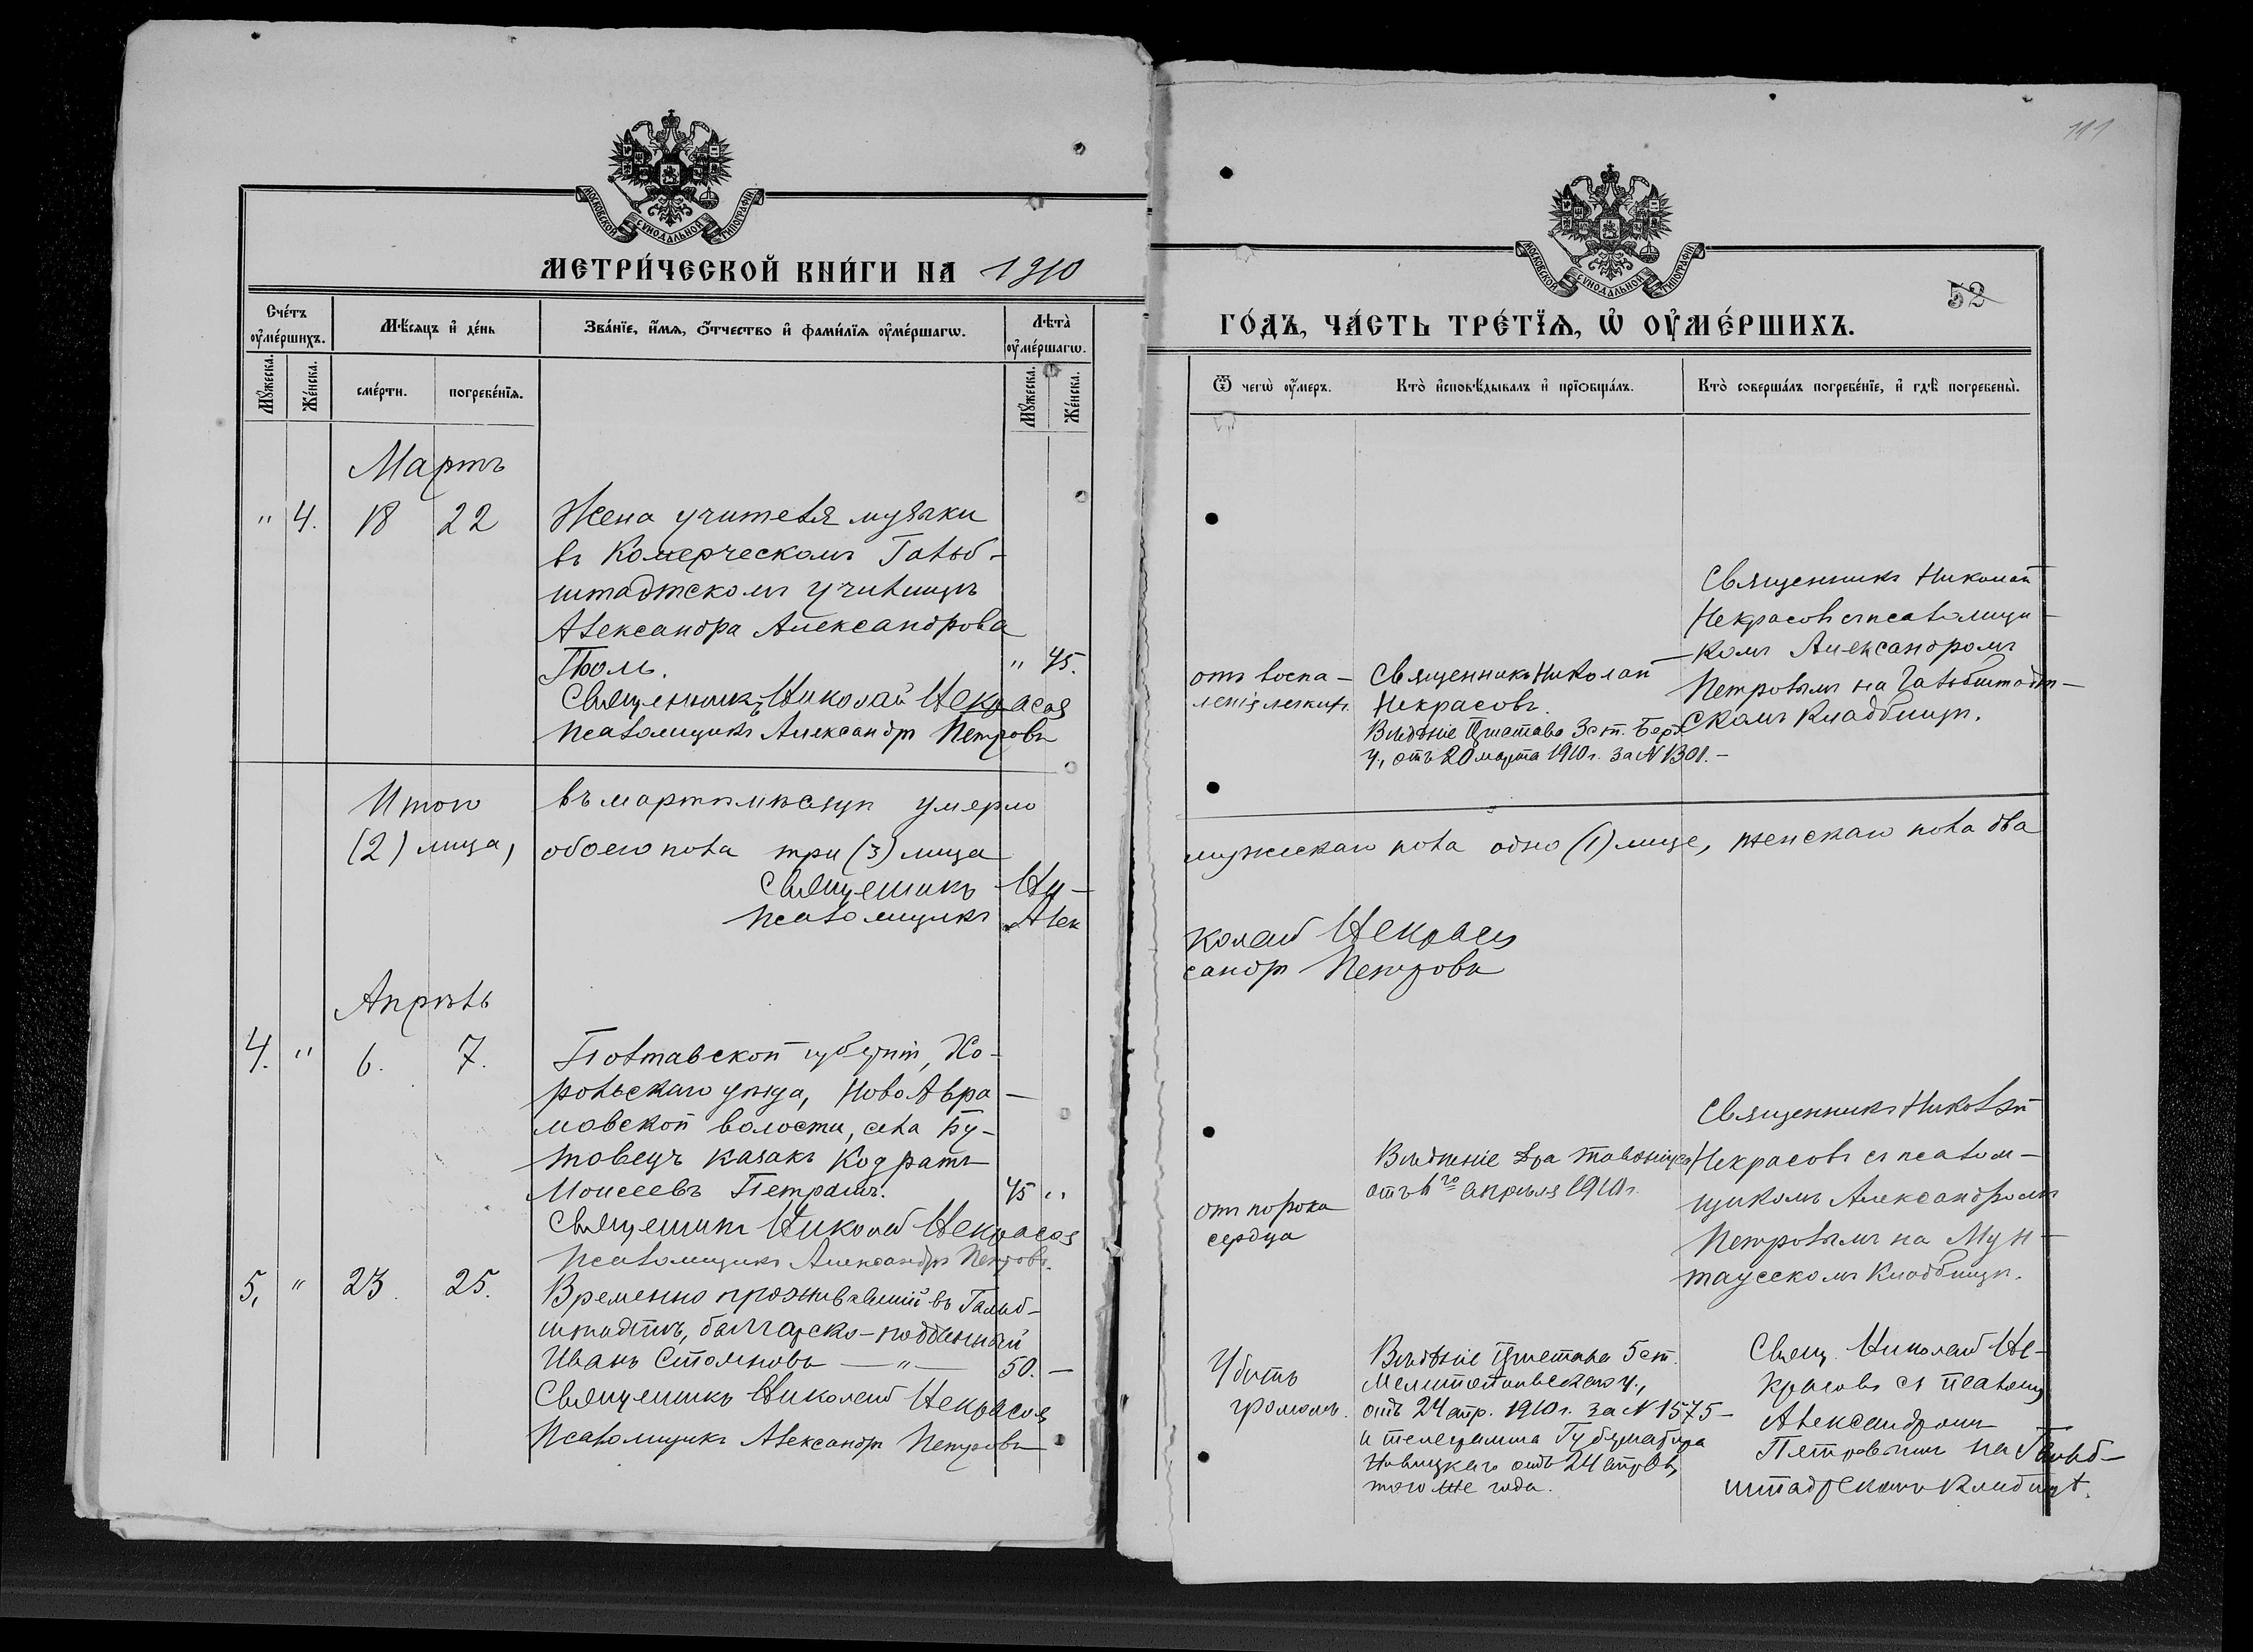 МОСКОВСКОЙ СѴНОДАЛЬНОЙ ТИПОГРАФІИ
МЕТРИ́ЧЕСКОЙ КНИ́ГИ НА 1910
Сче́тъ оу҆ме́ршихъ.
Мѣ́сяцъ и҆ де́нь
Зва́нїе, и҆́мя, ѻ҆́тчество и҆ фами́лїя оу҆ме́ршагѡ.
Лѣта̀ оу҆ме́ршагѡ.
Мꙋ́жеска.
Же́нска.
сме́рти.
погребе́нїя.
Мꙋ́жеска.
Же́нска.
Мартъ
" 4. 18 22
Жена учителя музыки
въ Комерческомъ Гальб-
штадтскомъ училищѣ
Александра Александрова
Тюль. " 45.
Священникъ Николай Некрасов
Псаломщикъ Александръ Петровъ
Итого въ мартѣ мѣсяцѣ умерло
(2) лица, обоего пола три (3) лица
Священникъ Ни-
Псаломщикъ Алек
Апрѣль
4. " 6. 7.
Полтавской губерніи, Хо-
рольскаго уѣзда, Ново Авра-
мовской волости, села Бу-
товецъ казакъ Кодратъ
Моисеевъ Петрашъ. 45 "
Священникъ Николай Некрасов
Псаломщикъ Александръ Петровъ.
5. " 23. 25.
Временно проживавшій въ Гальб-
штадтѣ, болгарско-подданный
Иванъ Стояновъ — " — 50. —
Священникъ Николай Некрасов
Псаломщикъ Александръ Петровъ
111
МОСКОВСКОЙ СѴНОДАЛЬНОЙ ТИПОГРАФІИ
52
ГО́ДЪ, ЧА́СТЬ ТРЕ́ТЇЯ, Ѡ҆ ОУ҆МЕ́РШИХЪ.
Ѿ чегѡ̀ оу҆́меръ.
Кто̀ и҆сповѣ́дывалъ и҆ прїѡбща́лъ.
Кто̀ соверша́лъ погребе́нїе, и҆ гдѣ̀ погребены̀.
отъ воспа-
ленія легкихъ.
Священникъ Николай
Некрасовъ.
Вѣдѣніе Пристава 3 ст. Берд.
у., отъ 20 марта 1910 г. за N 1301. -
Священникъ Николай
Некрасовъ съ псаломщи-
комъ Александромъ
Петровымъ на Гальбштадт-
скомъ Кладбищѣ.
мужескаго пола одно (1) лице, женскаго пола два
колай Некрасов
сандръ Петровъ
отъ порока
сердца
Вѣдѣніе Д-ра
отъ 6го апрѣля 1910 г.
Священникъ Николай
Некрасовъ съ псалом-
щикомъ Александромъ
Петровымъ на Мун-
таусскомъ Кладбищѣ.
Убитъ
громомъ.
Вѣдѣніе Пристава 5 ст.
Мелитопольскаго у.,
отъ 24 апр. 1910 г. за N 1575 -
и телеграмма Губернатора
Новицкаго отъ 24 апрѣл.
того же года.
Свящ. Николай Не-
красовъ съ псаломщ.
Александромъ
Петровымъ на Гальб-
штадтскомъ Кладбищѣ.